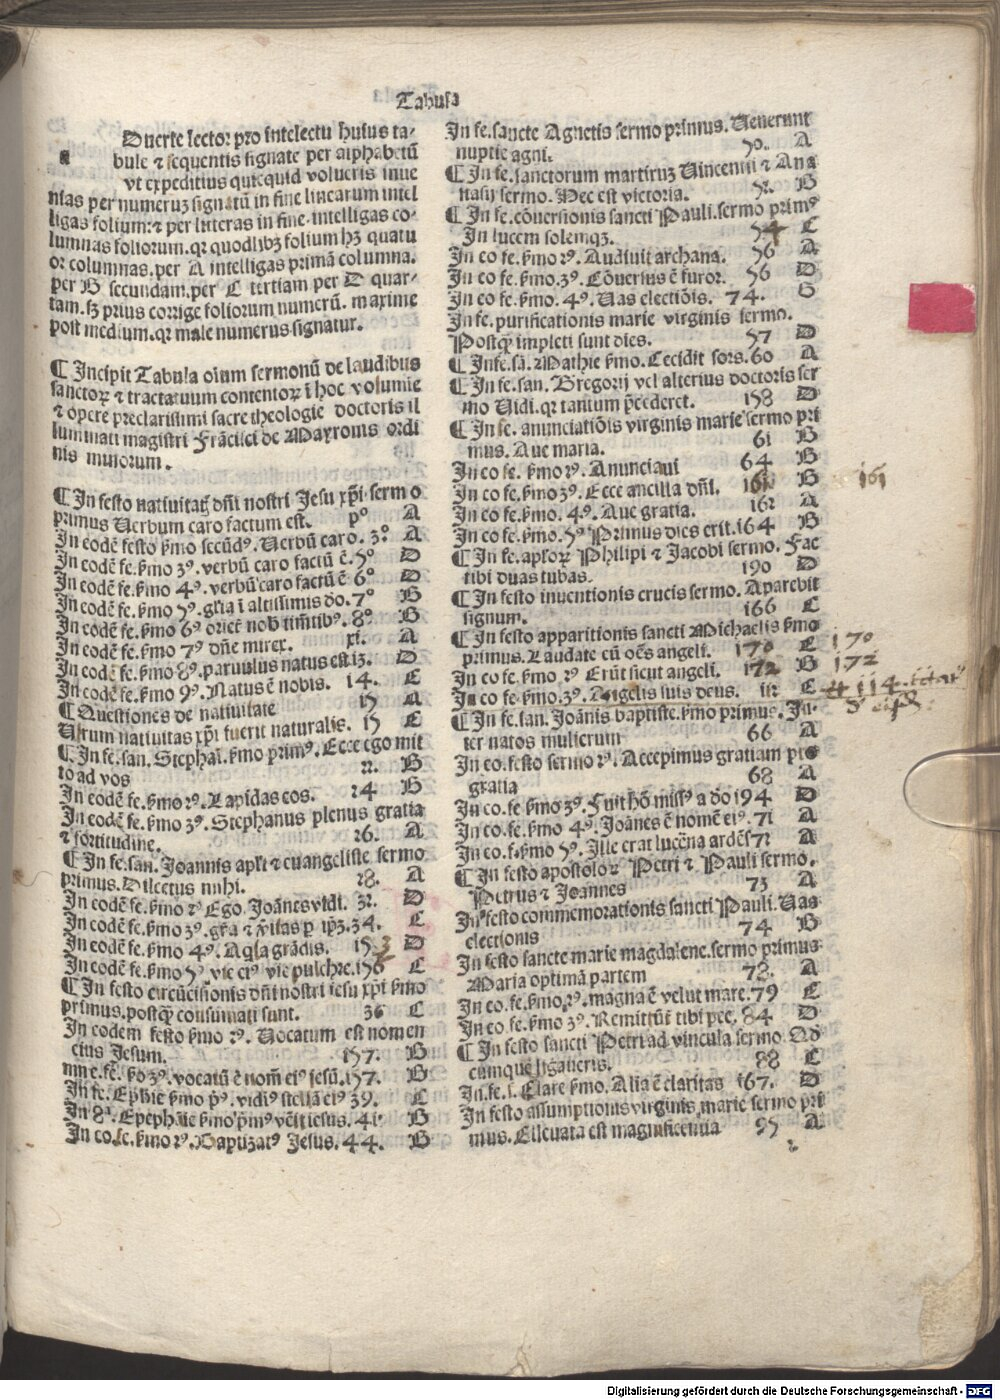 Tabula
Duerte lector pro intelectu huius ta-
bule ⁊ sequentis signate per alphabetū
vt expeditius quicquid volueris inue
nias per numeruꝫ signatū in fine linearum intel
ligas folium: ⁊ per litteras in fine intelligas co-
lumnas foliorum. qꝛ quodlibꝫ folium hꝫ quatu
or columnas. per A intelligas primā columna.
per B secundam. per C tertiam per D quar-
tam. sꝫ prius corrige foliorum numerū. maxime
post medium. qꝛ male numerus signatur.
¶ Incipit Tabula oīum sermonū de laudibus
sanctoꝝ ⁊ tractatuum contentoꝝ ī hoc volumie
⁊ opere preclarissimi sacre theologie doctoris il
luminati magistri Frācisci de Mayronis ordi
nis minorum.
¶ In festo natiuitatꝭ dn̄i nostri Jesu xp̄i sermo
primus Verbum caro factum est. pº A
In eodē festo ẜmo secūdꝰ. Verbū caro. 3º A
In codē fe. ẜmo 3ꝰ. verbū caro factū ē. 5º D
In codē fe. ẜmo 4ꝰ. verbū caro factū ē 6º D
In codē fe. ẜmo 5ꝰ. gl̄ia ī altissimis do. 7º B
In codē fe. ẜmo 6ꝰ oriet̄ nob timētibꝰ. 8º B
In codē fe. ẜmo 7ꝰ dn̄e mi rex. xi. A
In codē fe. ẜmo 8ꝰ. paruulus natus est 13. D
In codē fe. ẜmo 9ꝰ. Natus ē nobis. 14. C
¶ Questiones de natiuitate 15 A
Utrum natiuitas xp̄i fuerit naturalis. 15 C
¶ In fe. san. Stephaī. ẜmo primꝰ. Ecce ego mit
to ad vos 22. B
In eodē fe. ẜmo 2ꝰ. Lapidas eos. 24 B
In eodē fe. ẜmo 3ꝰ. Stephanus plenus gratia
⁊ fortitudine. 26. A
¶ In fe. san. Joannis apl̄i ⁊ euangeliste sermo
primus. Dilectus mihi. 28. A
In codē fe. ẜmo 2ꝰ Ego Joānes vidi. 32. D
In codē fe. ẜmo 3ꝰ. gr̄a ⁊ v̄itas ꝑ ip̄ꝫ. 34. C
In codē fe. ẜmo 4ꝰ. Aq̄la grādis. 153 D
In codē fe. ẜmo 5ꝰ vie eiꝰ vie pulchre. 156 C
¶ In festo circūcisionis dn̄i nostri iesu xp̄i ẜmo
primus. postqꝫ consumati sunt. 36 C
In codem festo ẜmo 2ꝰ. Vocatum est nomen
eius Jesum. 157. B
ẜmo 3ꝰ. vocatū ē nom̄ eiꝰ iesū. 157. B
In fe. Ep̄hie ẜmo pꝰ. vidiꝰ stellā eiꝰ 39. C
In 8ª. Epephāie ẜmo p̄mꝰ vēit iesus. 41 B
In eo. fe. ẜmo 2ꝰ. Baptizatꝰ Jesus. 44. B
In fe. sancte Agnetis sermo primus. Venerunt
nuptie agni. 50. A
¶ In fe. sanctorum martiruꝫ Vincentii ⁊ Ana
nasij sermo. Hec est victoria. 52. B
¶ In fe. cōuersionis sancti Pauli. sermo primꝰ
In lucem solemqꝫ. 54 C
In eo fe. ẜmo 2ꝰ. Audiuit archana. 56 A
In eo fe. ẜmo. 3ꝰ. Cōuersus ē furor. 56 D
In eo fe. ẜmo. 4ꝰ. Vas electiōis. 74. B
In fe. purificationis marie virginis sermo.
Postqꝫ impleti sunt dies. 57 D
¶ In fe. sā. Mathie ẜmo. Cecidit sors. 60 A
¶ In fe. san. Gregorij vel alterius doctoris ser
mo Vidi. qꝛ tantum p̄cederet. 158 D
¶ In fe. anunciatiōis virginis marie sermo pri
mus. Aue maria. 61 B
In eo fe. ẜmo 2ꝰ. Anunciaui 64 B
In eo fe. ẜmo. 3ꝰ. Ecce ancilla dn̄i. 161 B 161
In eo fe. ẜmo. 4ꝰ. Aue gratia. 162 A
In eo fe. ẜmo. 5ꝰ Primus dies erit. 164 B
¶ In fe. apl̄oꝝ Philipi ⁊ Jacobi sermo. Fac
tibi duas tubas. 190 D
¶ In festo inuentionis crucis sermo. Aparebit
signum. 166 C
¶ In festo apparitionis sancti Michaelis ẜmo
primus. Laudate eū oēs angeli. 170 C 170
In eo fe. ẜmo. 2ꝰ Erūt sicut angeli. 172 B 172
In eo fe. ẜmo. 3ꝰ. Angelis suis deus. 112 C 114.
¶ In fe. san. Joānis baptiste. ẜmo primus. In-
ter natos mulierum 66 A
In eo. festo sermo 2ꝰ. Accepimus gratiam pro
gratia 68 A
In eo. fe. ẜmo 3ꝰ. Fuit hō missꝰ a do 194 D
In eo. fe. ẜmo 4ꝰ. Joānes ē nomē eiꝰ. 71 A
In eo. f. ẜmo 5ꝰ. Ille erat lucēna ardēs 72 A
¶ In festo apostoloꝝ Petri ⁊ Pauli sermo.
Petrus ⁊ Joannes 73 A
In festo commemorationis sancti Pauli. Vas
electionis 74 B
In festo sancte marie magdalene. sermo primus
Maria optimā partem 78. A
In eo. fe. ẜmo. 2ꝰ. magna ē velut mare. 79 C
In eo. fe. ẜmo 3ꝰ. Remittūt̄ tibi pec. 84 D
¶ In festo sancti Petri ad vincula sermo. Qd
cumque ligaueris. 88 C
In. fe. s. Clare ẜmo. Alia ē claritas 167. D
In festo assumptionis virginis marie sermo pri
mus. Elleuata est magnificentia 95 A
2
Digitalisierung gefördert durch die Deutsche Forschungsgemeinschaft - DFG